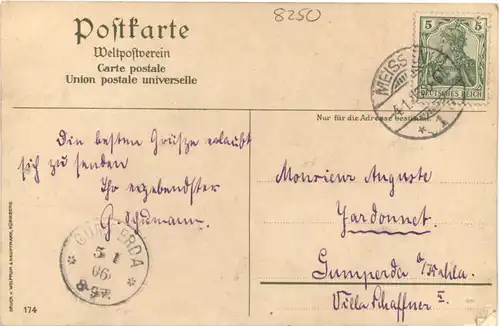 8250
Postkarte
Weltpostverein
Carte postale
Union postale universelle
5 5
DEUTSCHES REICH
MEISS
4.1.
* 1
Nur für die Adresse
Die besten Grüsze erlaubt
sich zu senden
Ihr ergebendster
G. Schumann.
Monsieur Auguste
Jardonnet.
Gumperda a/Kahla.
Villa Schaffner
GU ERDA
5 1
06
DRUCK v. WOLFRUM & HAUPTMANN, NÜRNBERG.
174